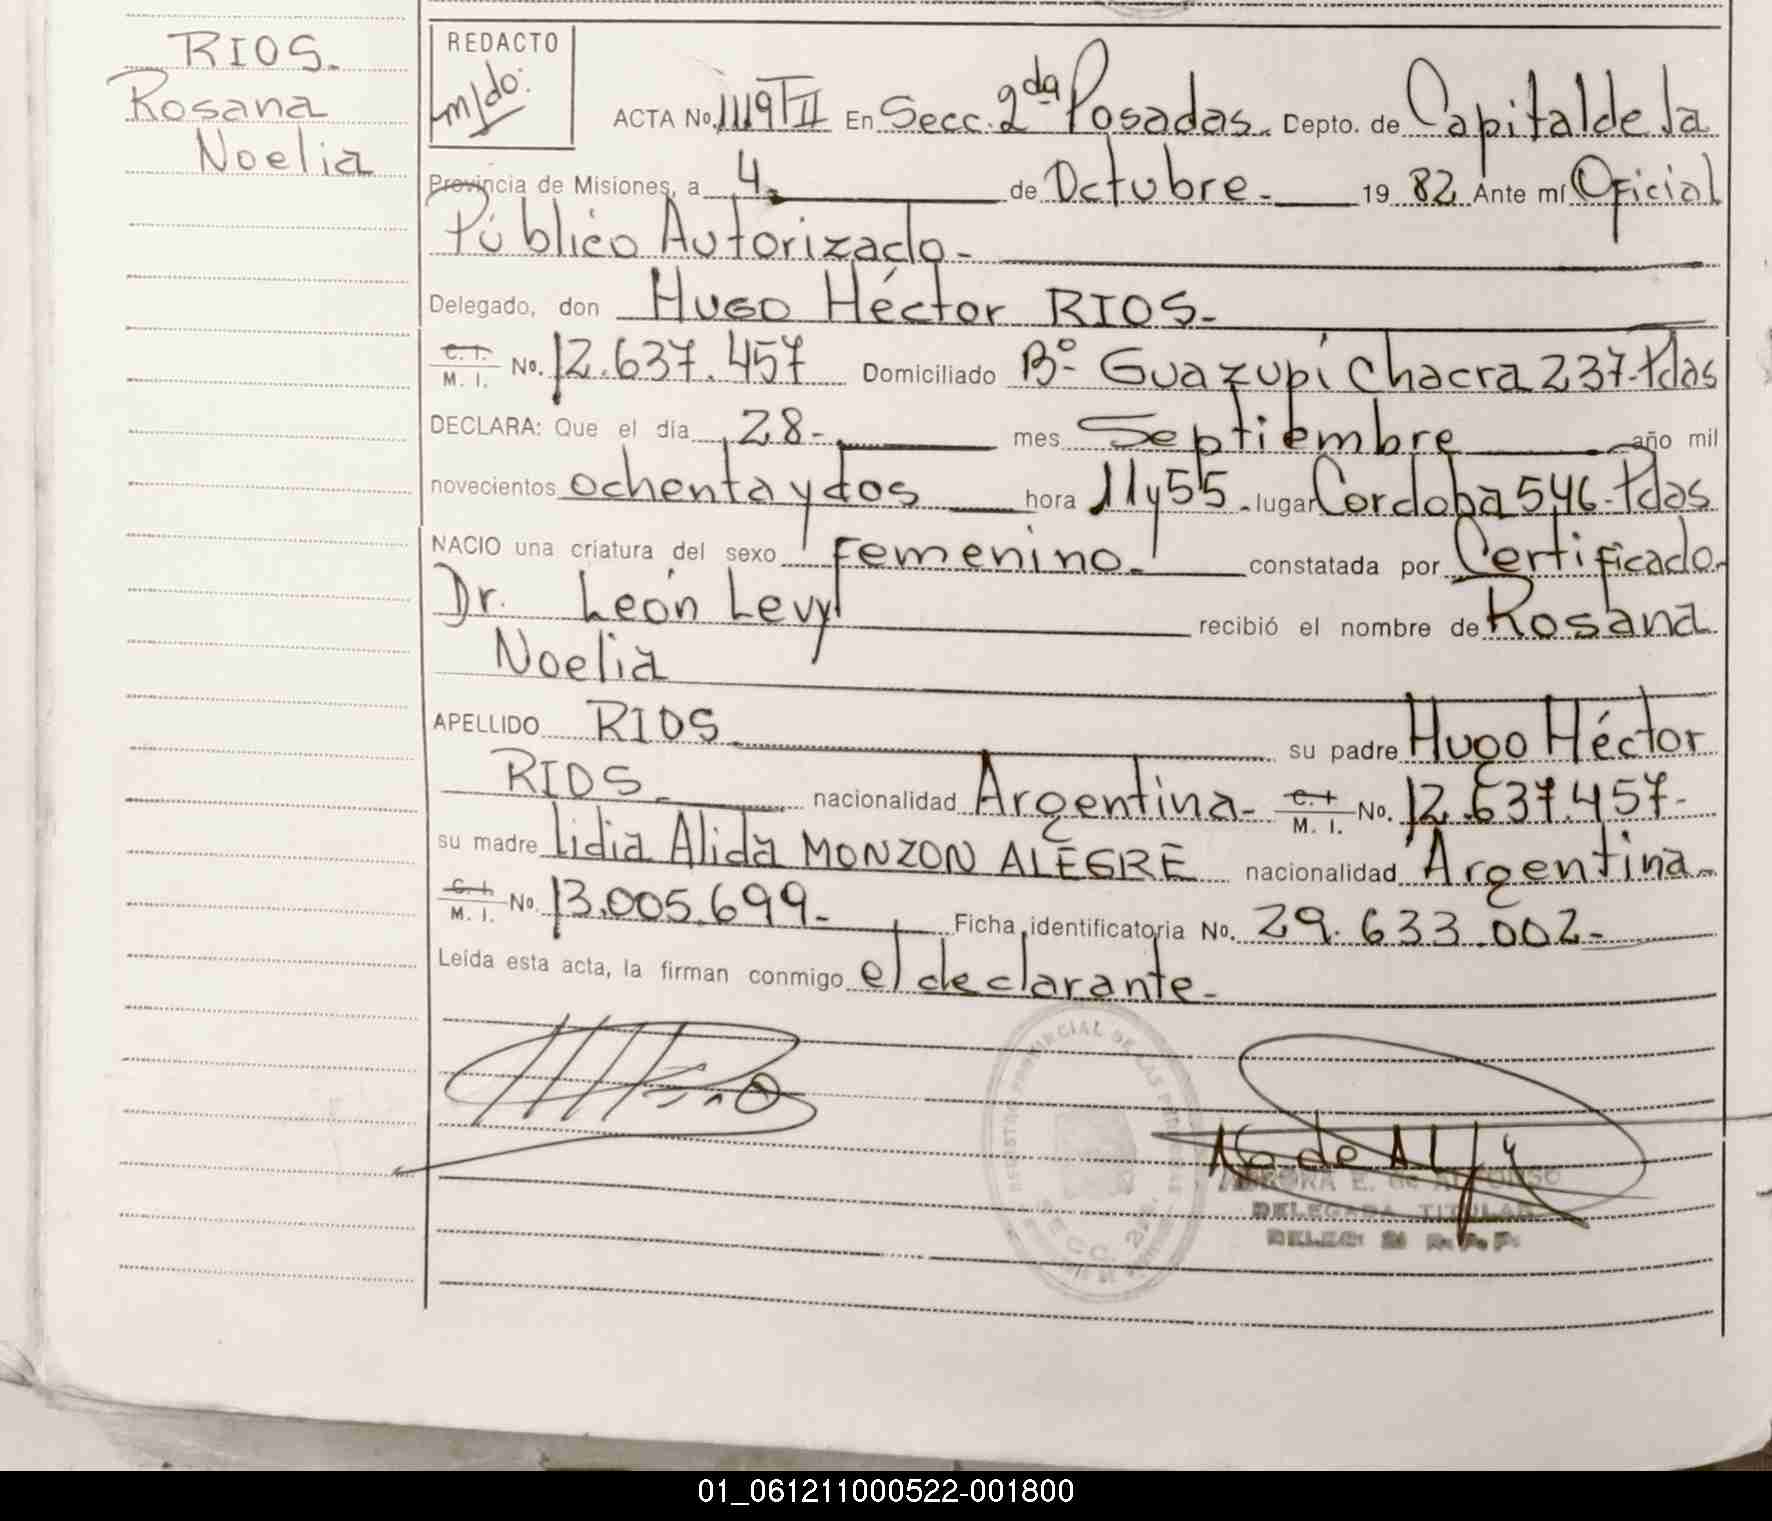 RIOS.
Rosana
Noelia
REDACTO
m/do:
ACTA No. 1119 T II En Secc. 2da Posadas. Depto. de Capital de la
Provincia de Misiones, a 4 de Octubre. 19 82 Ante mí Oficial
Público Autorizado.
Delegado, don Hugo Héctor RIOS.
C. I. M. I. No. 12.637.457 Domiciliado Bº Guazupi Chacra 237-Pdas
DECLARA: Que el día 28- mes Septiembre año mil
novecientos ochenta y dos hora 11 y 55. lugar Cordoba 546-Pdas
NACIO una criatura del sexo femenino. constatada por Certificado.
Dr. León Levy recibió el nombre de Rosana
Noelia
APELLIDO RIOS su padre Hugo Héctor
RIOS. nacionalidad Argentina- C. I. M. I. No. 12.637.457-
su madre Lidia Alida MONZON ALEGRE nacionalidad Argentina-
C. I. M. I. No. 13.005.699- Ficha identificatoria No. 29.633.002-
Leída esta acta, la firman conmigo el declarante-
REGISTRO PROVINCIAL DE LAS PERSONAS
SECC. 2da.
AURORA E. de ALFONSO
DELEGADA TITULAR
DELEG. 2ª R. P. P.
01_061211000522-001800